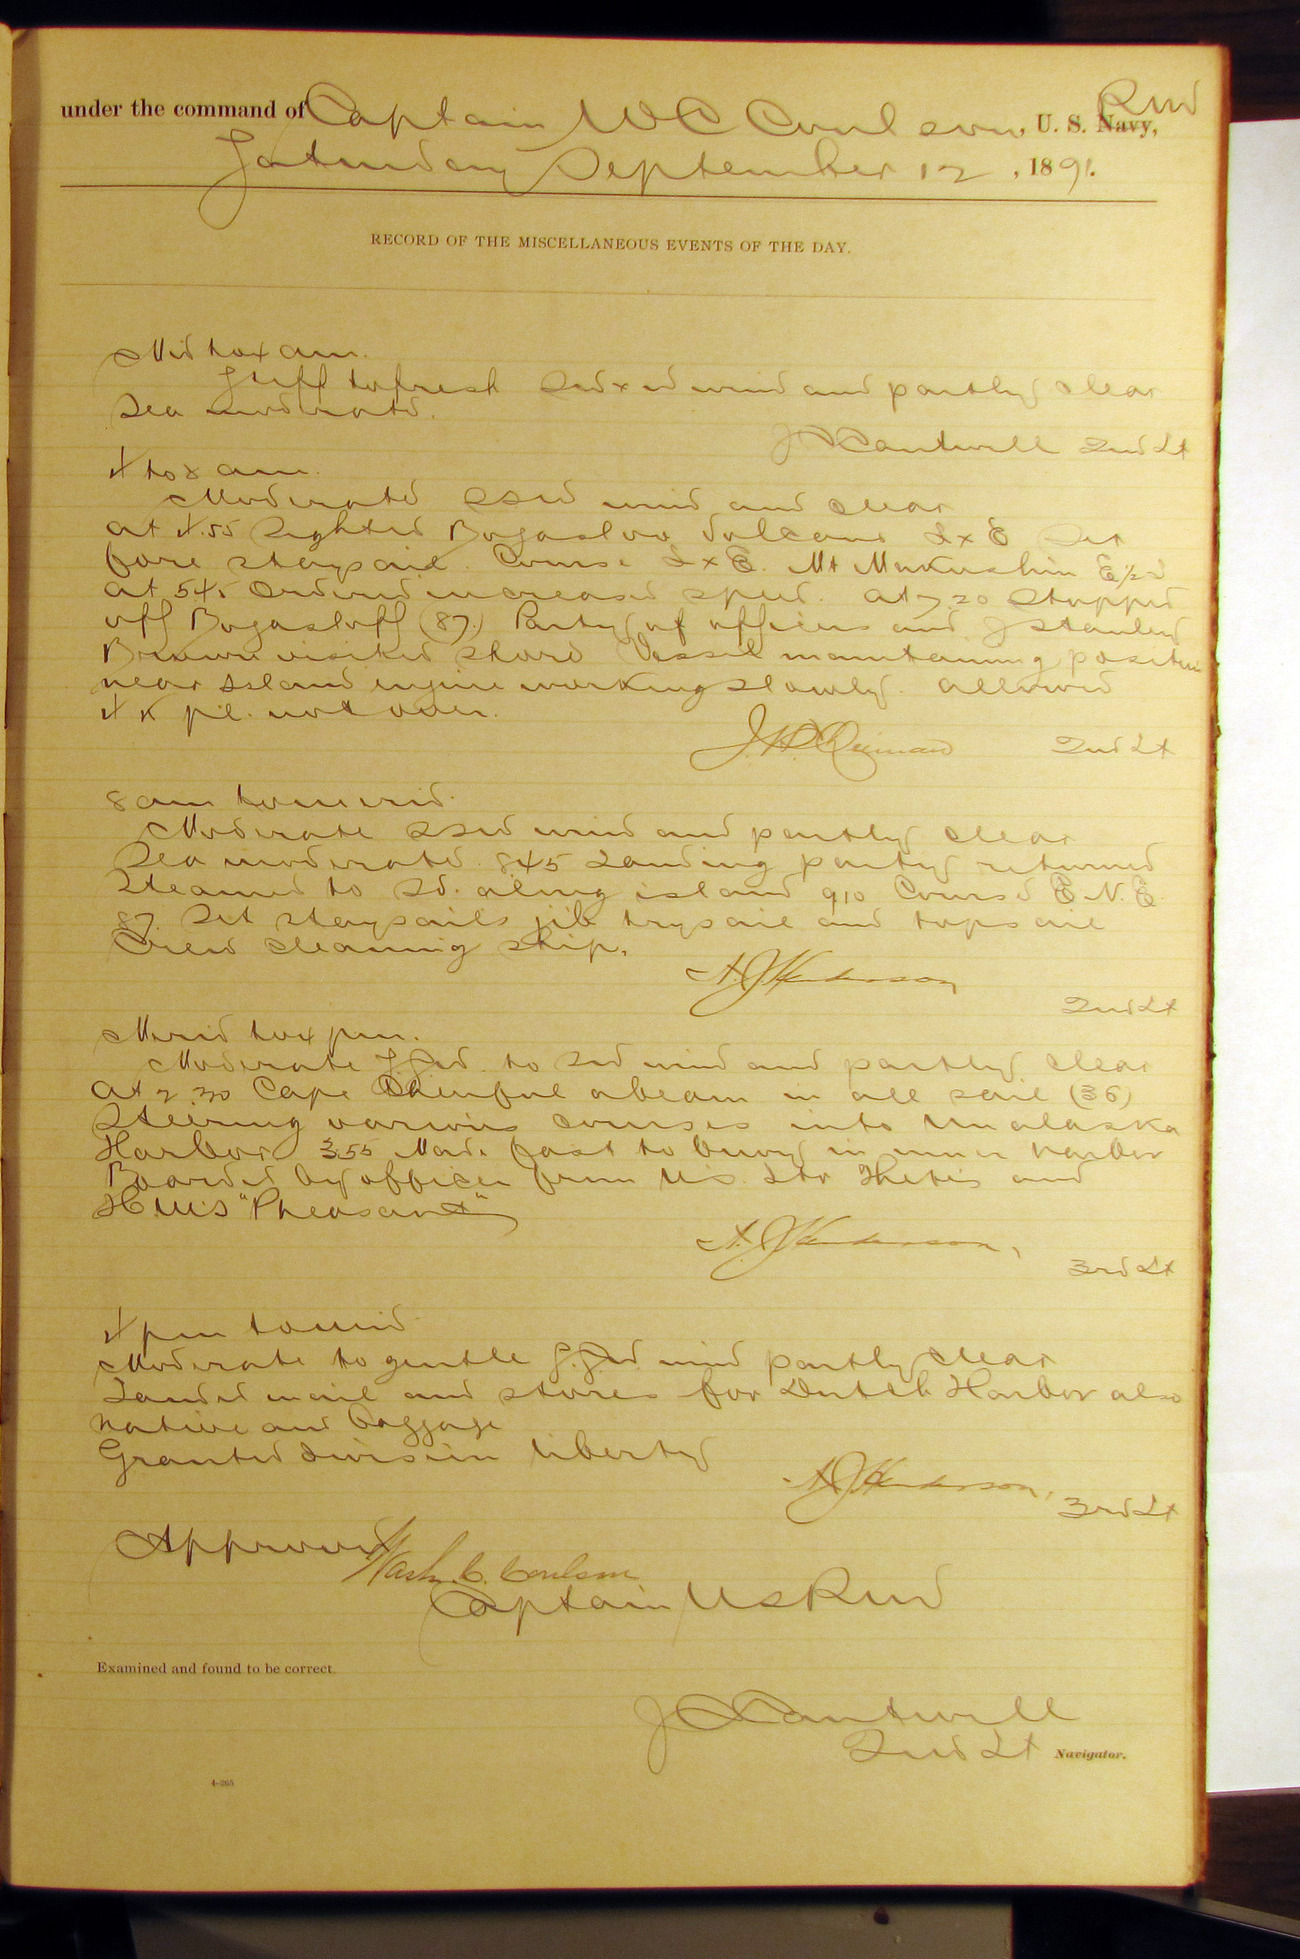 under the command of Captain W C Coulson, U. S. Navy, RM
Saturday September 12, 1891.
RECORD OF THE MISCELLANEOUS EVENTS OF THE DAY.
Mid to 4 am.
Stiff to fresh wind and partly clear
Sea moderate.
J C Cantwell 2nd Lt
4 to 8 am.
Moderate SSWd wind and clear
at 4.55 Sighted Bogaslov Volcano SxE Set
fore staysail. Course SxE. Mt Makushin E½S
at 545 Ordered increased speed. at 7 20 Stopped
off Bogasloff (87) Party of officers and J Stanley
Brown visited shore Vessel maintaining position
near Island engine working slowly. allowed
4 K pil. wood over.
2nd Lt
8 am to merid.
Moderate SSWd wind and partly clear
Sea moderate. 8.45 Landing party returned
Steamed to Sd. along island 910 Course E N.E.
87. Set staysails jib trysail and topsail
Crew cleaning ship.
2nd Lt
Merid to 4 pm.
Moderate S.Sd. to SWd wind and partly clear
At 2 30 Cape Cheerful abeam in all sail (36)
Steering various courses into Unalaska
Harbor 355 Made fast to buoy in inner harbor
Boarded by officer from US Str Thetis and
HMS "Pheasant"
3rd Lt
4 pm to mid
Moderate to gentle wind partly clear
Landed mail and stores for Dutch Harbor also
native and baggage
Granted division liberty
3rd Lt
Approved Wash. C. Coulson
Captain US RM
Examined and found to be correct.
J C Cantwell
2nd Lt Navigator.
4—265